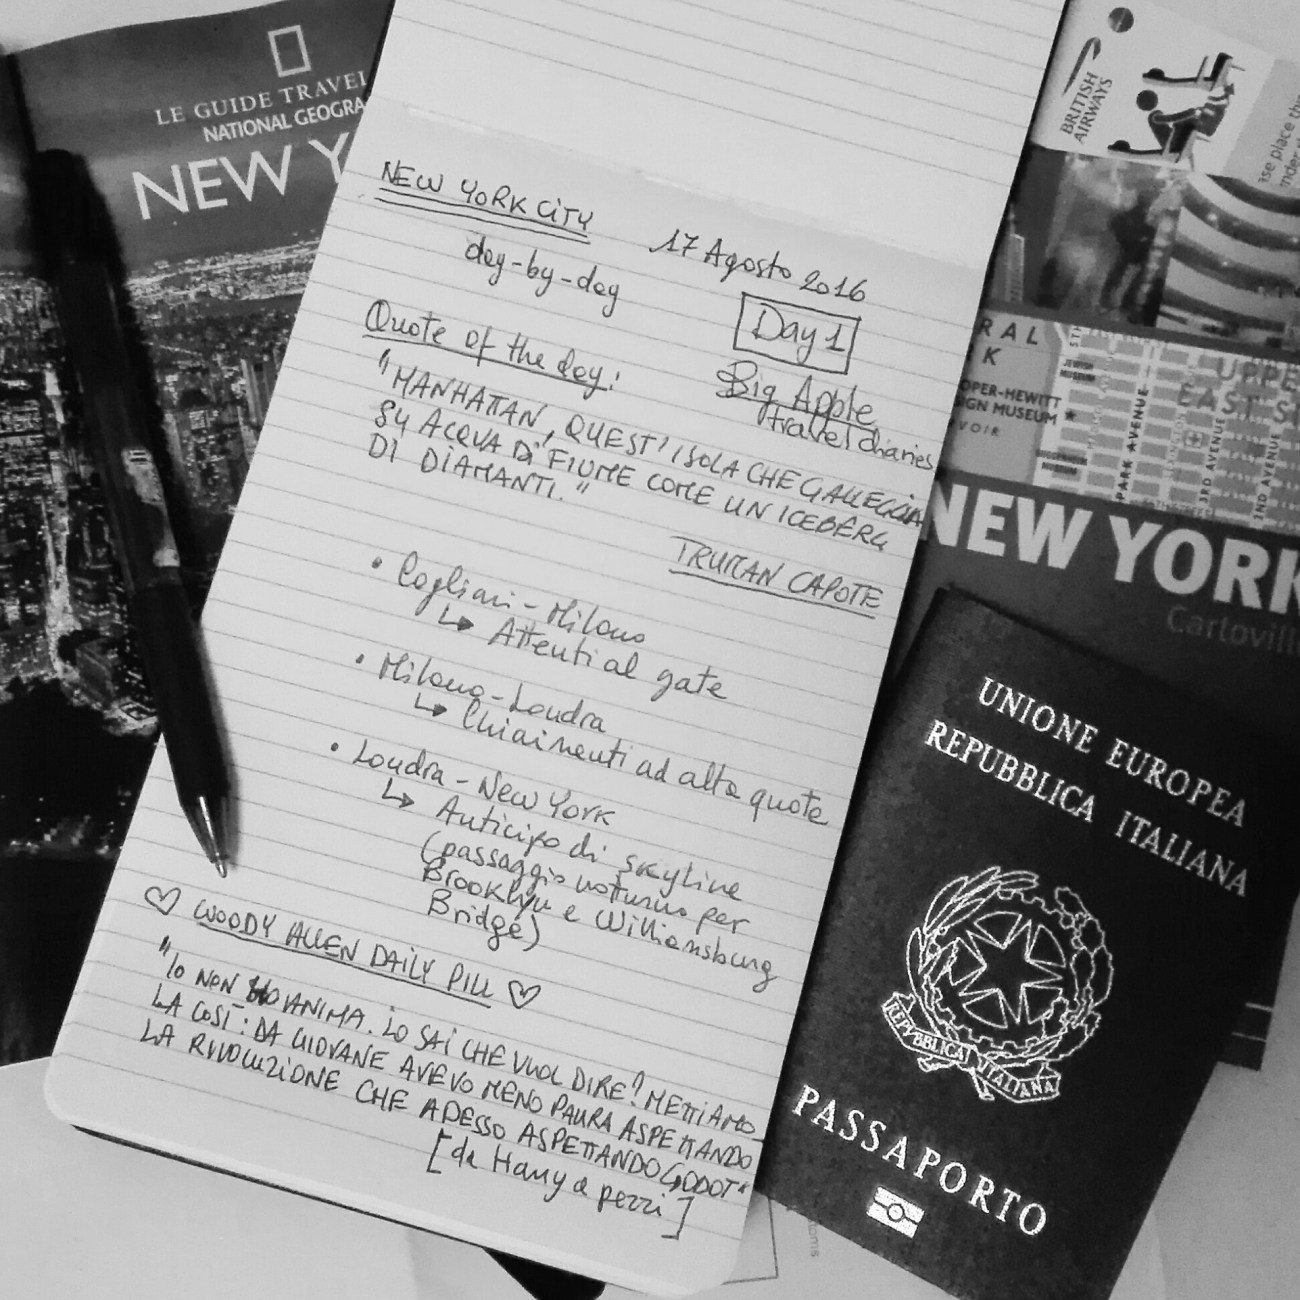 LE GUIDE TRAVEL
NATIONAL GEOGRA
NEW Y
NEW YORK CITY
day-by-day
17 Agosto 2016
Day 1
Big Apple
travel diaries
Quote of the day:
"MANHATTAN, QUEST'ISOLA CHE GALLEGGIA
SU ACQUA DI FIUME COME UN ICEBERG
DI DIAMANTI."
TRUMAN CAPOTE
• Cagliari - Milano
↳ Attenti al gate
• Milano - Londra
↳ Chiarimenti ad alta quote
• Londra - New York
↳ Anticipo di skyline
(passaggio notturno per
Brooklyn e Williamsburg
Bridge)
♡ WOODY ALLEN DAILY PILL ♡
"IO NON HO ANIMA. LO SAI CHE VUOL DIRE? METTIAMO
LA COSÌ: DA GIOVANE AVEVO MENO PAURA ASPETTANDO
LA RIVOLUZIONE CHE ADESSO ASPETTANDO GODOT"
[da Harry a pezzi]
BRITISH
AIRWAYS
ase place this
nder th
RAL
K
OPER-HEWITT
IGN MUSEUM
VOIR
5TH
JEWISH
MUSEUM
GUGGENHEIM
MUSEUM
PARK AVENUE
LEXINGTON
3RD AVENUE
2ND AVENUE
UPPE
EAST S
NEW YORK
Cartoville
UNIONE EUROPEA
REPUBBLICA ITALIANA
REPVBBLICA ITALIANA
PASSAPORTO